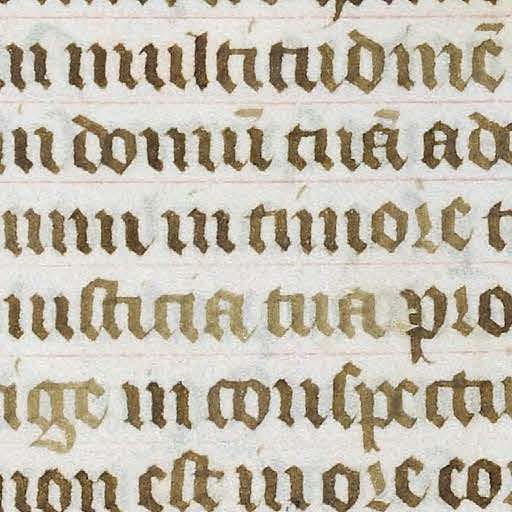 in multitudinē
in domū tuā ado
tuum in timore t
iusticia tua pro
rige in conspectu
non est in ore cor